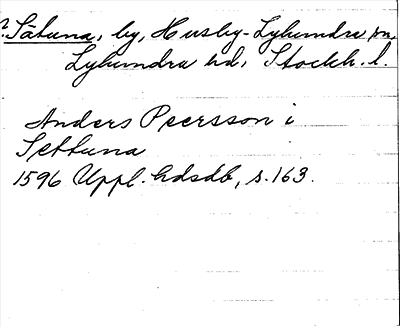 ? Sätuna, by, Husby-Lyhundra sn,
Lyhundra hd, Stockh. l.
Anders Peersson i
Settuna
1596 Uppl. hdsdb, s. 163.